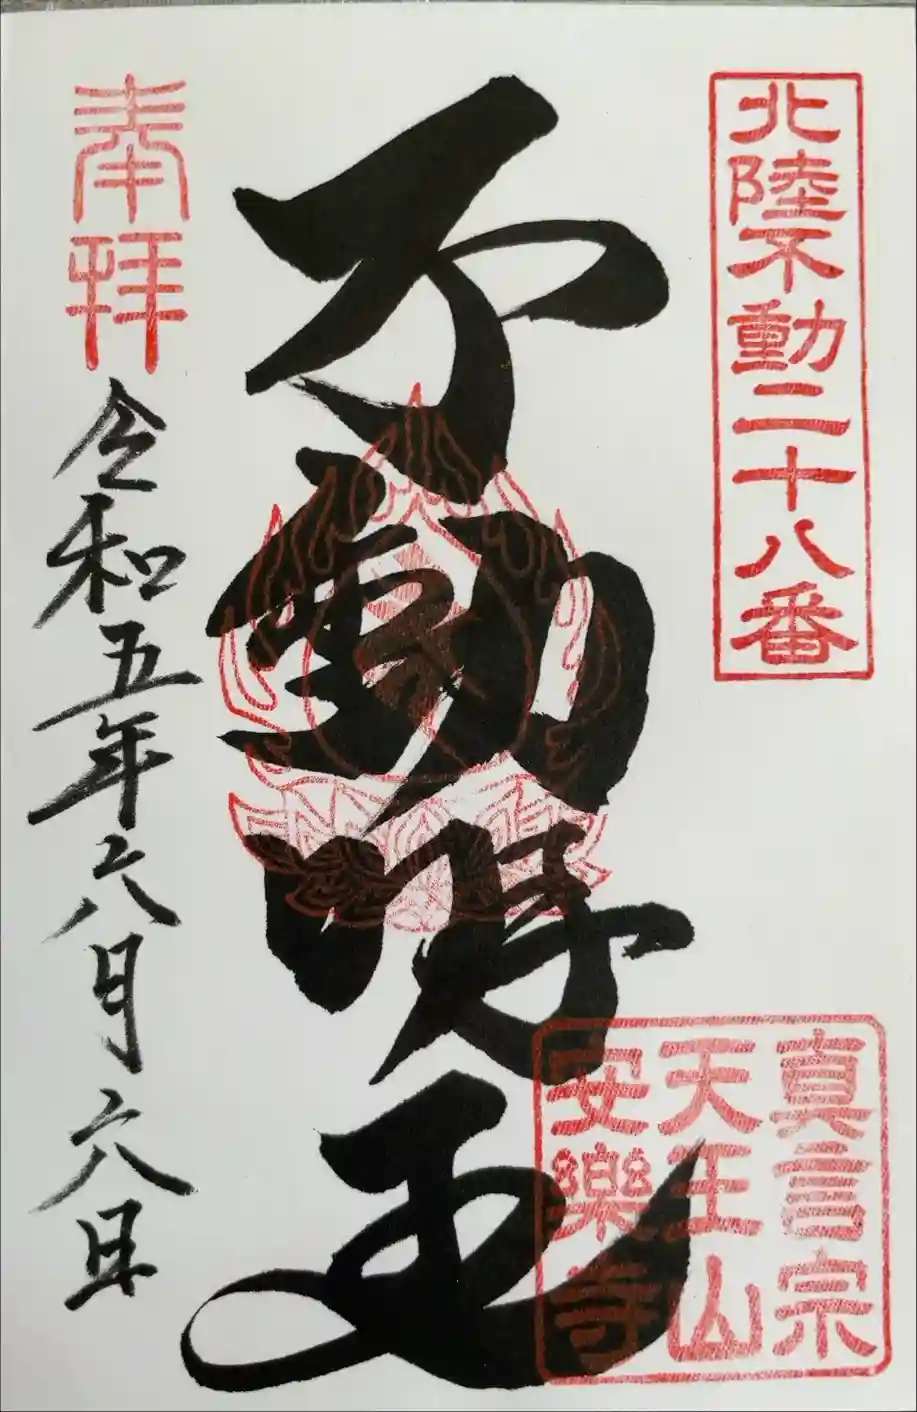 北陸不動二十八番
不動明王
奉拝
令和五年六月六日
真言宗
天王山
安樂寺